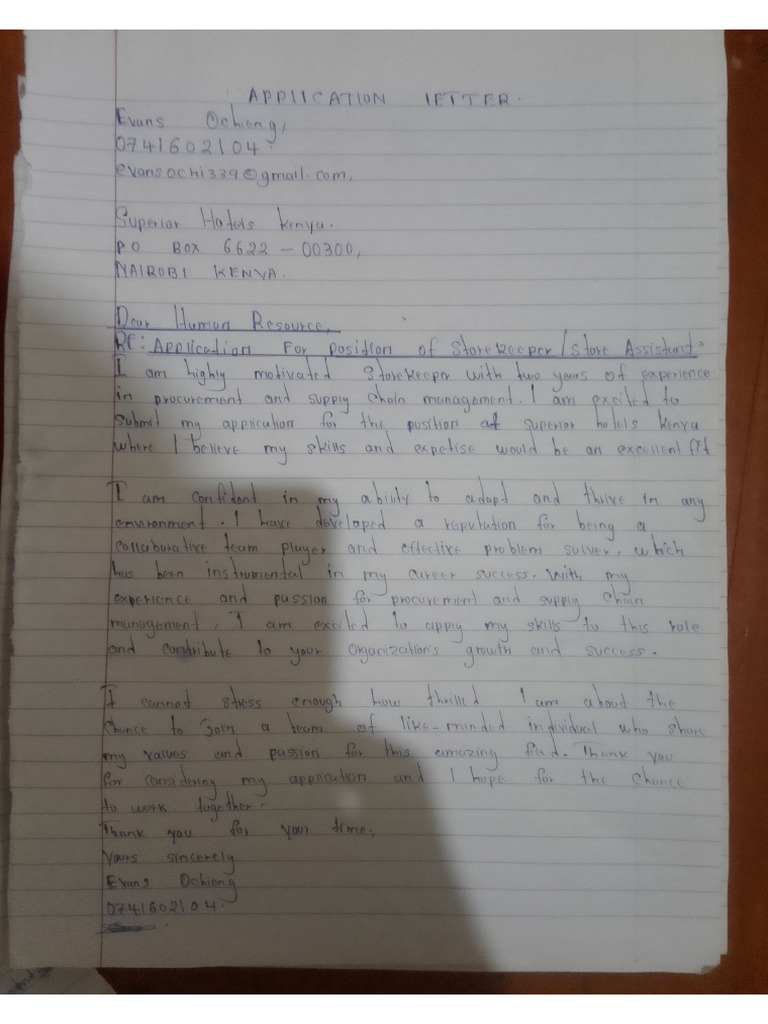 APPLICATION LETTER.
Evans Ochieng,
0741602104.
evansochi339@gmail.com,
Superior Hotels Kenya.
P.O BOX 6622 - 00300,
NAIROBI KENYA.
Dear Human Resource,
RE: Application For position of Storekeeper/Store Assistant.
I am highly motivated Storekeeper with two years of experience
in procurement and supply chain management. I am excited to
submit my application for the position at superior hotels Kenya
where I believe my skills and expetise would be an excellent fit
I am confident in my ability to adapt and thrive in any
environment. I have developed a reputation for being a
collaborative team player and effective problem solver, which
has been instrumental in my career success. With my
experience and passion for procurement and supply chain
management, I am excited to apply my skills to this role
and contribute to your organization's growth and success.
I cannot stress enough how thrilled I am about the
chance to Join a team of like-minded individual who share
my values and passion for this amazing field. Thank you
for considering my application and I hope for the chance
to work together.
Thank you for your time,
Yours sincerely
Evans Ochieng
0741602104.